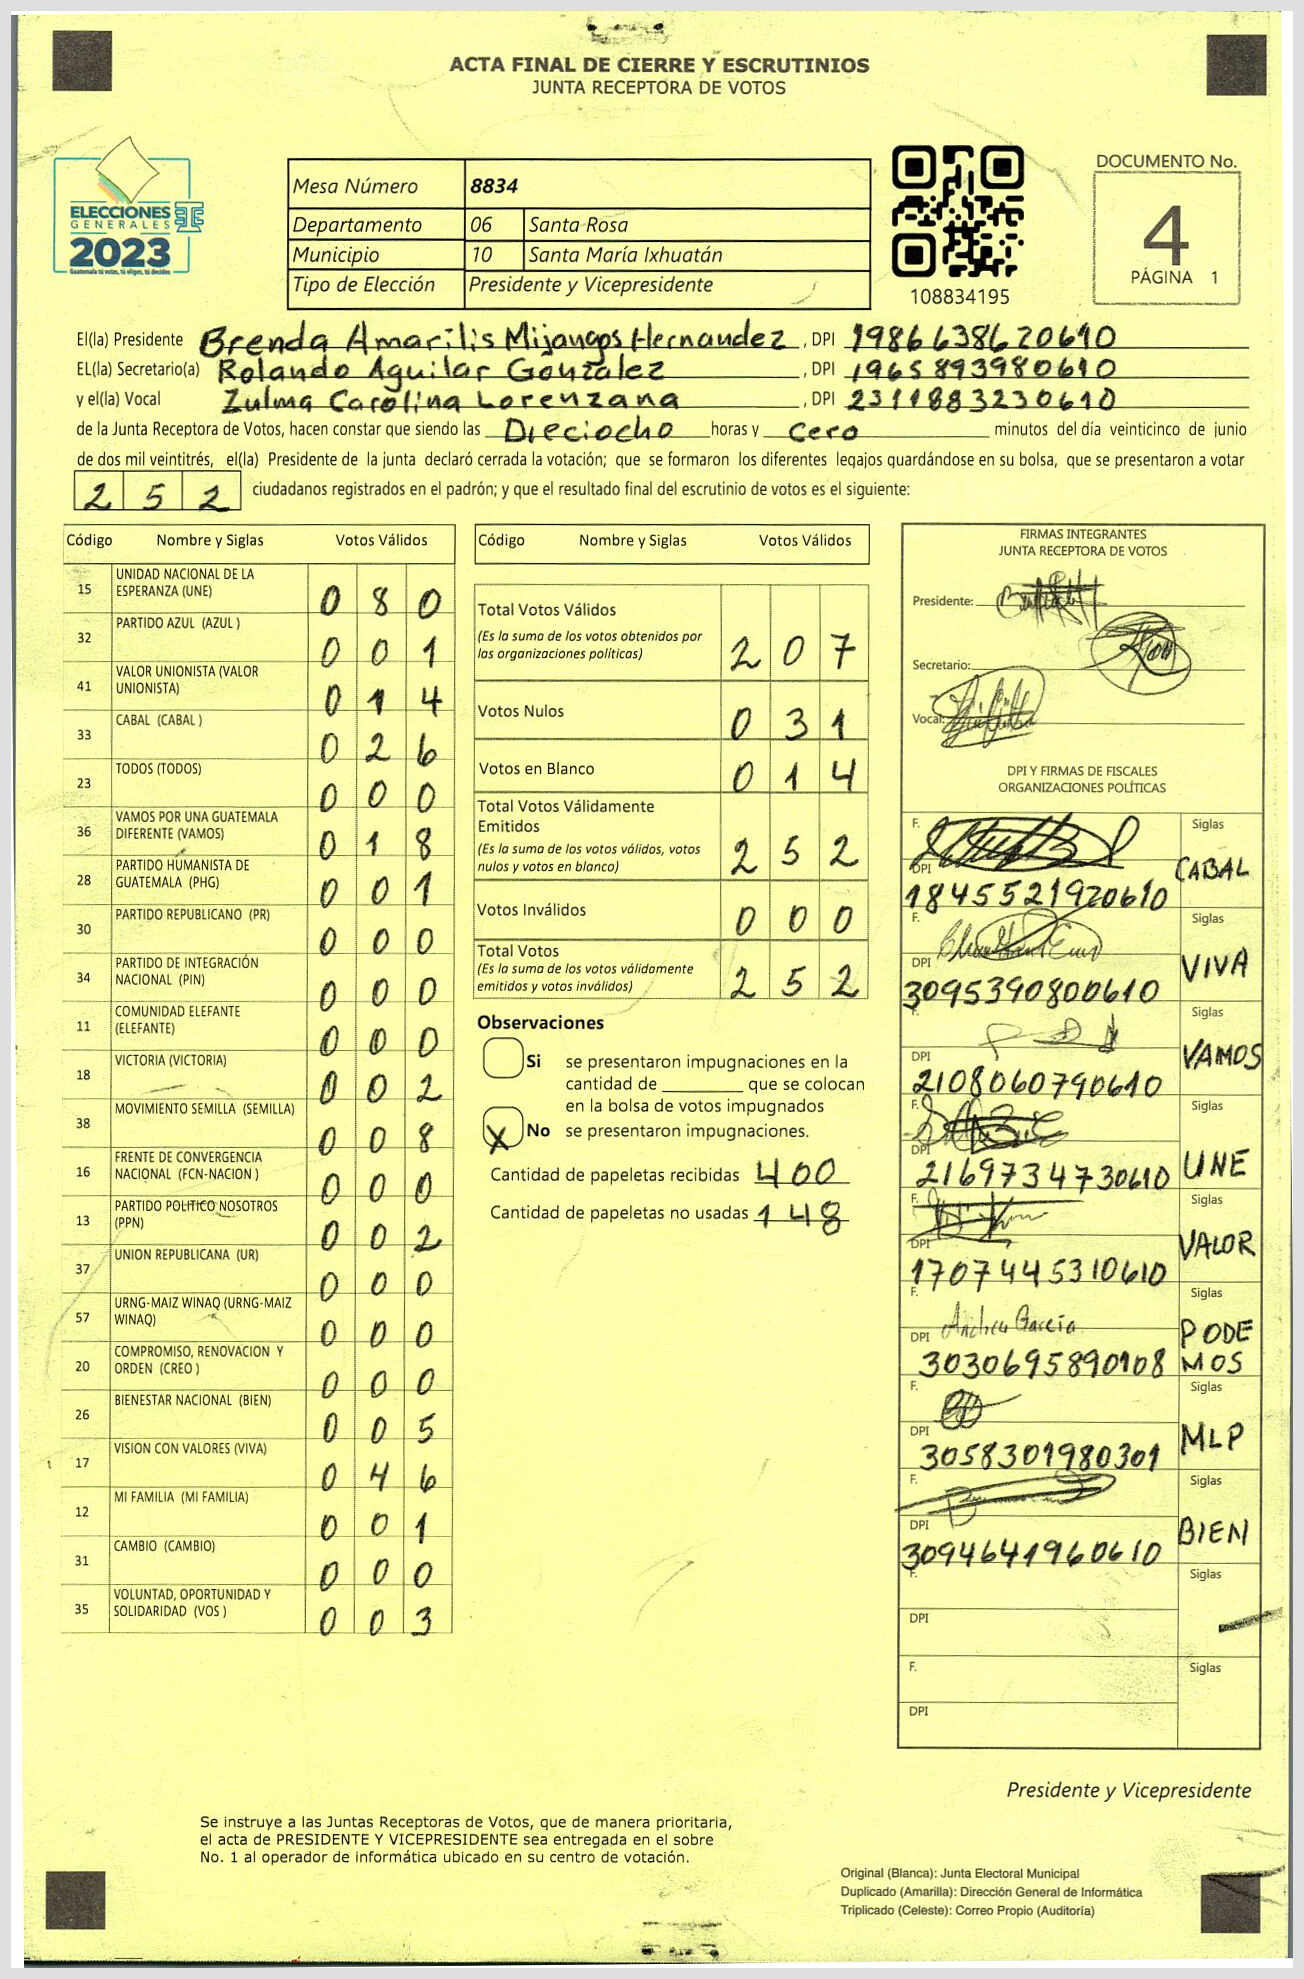 ACTA FINAL DE CIERRE Y ESCRUTINIOS
JUNTA RECEPTORA DE VOTOS
ELECCIONES
GENERALES
2023
Guatemala tú votas, tú eliges, tú decides
Mesa Número 8834
Departamento 06 Santa Rosa
Municipio 10 Santa María Ixhuatán
Tipo de Elección Presidente y Vicepresidente
108834195
DOCUMENTO No.
4
PÁGINA 1
El(la) Presidente Brenda Amarilis Mijangos Hernandez, DPI 1986638620610
EL(la) Secretario(a) Rolando Aguilar González, DPI 1965893980610
y el(la) Vocal Zulma Carolina Lorenzana, DPI 2311883230610
de la Junta Receptora de Votos, hacen constar que siendo las Dieciocho horas y cero minutos del día veinticinco de junio
de dos mil veintitrés, el(la) Presidente de la junta declaró cerrada la votación; que se formaron los diferentes legajos guardándose en su bolsa, que se presentaron a votar
252 ciudadanos registrados en el padrón; y que el resultado final del escrutinio de votos es el siguiente:
Código Nombre y Siglas Votos Válidos
15 UNIDAD NACIONAL DE LA
ESPERANZA (UNE) 080
32 PARTIDO AZUL (AZUL ) 001
41 VALOR UNIONISTA (VALOR
UNIONISTA) 014
33 CABAL (CABAL ) 026
23 TODOS (TODOS) 000
36 VAMOS POR UNA GUATEMALA
DIFERENTE (VAMOS) 018
28 PARTIDO HUMANISTA DE
GUATEMALA (PHG) 001
30 PARTIDO REPUBLICANO (PR) 000
34 PARTIDO DE INTEGRACIÓN
NACIONAL (PIN) 000
11 COMUNIDAD ELEFANTE
(ELEFANTE) 000
18 VICTORIA (VICTORIA) 002
38 MOVIMIENTO SEMILLA (SEMILLA) 008
16 FRENTE DE CONVERGENCIA
NACIONAL (FCN-NACION ) 000
13 PARTIDO POLITICO NOSOTROS
(PPN) 002
37 UNION REPUBLICANA (UR) 000
57 URNG-MAIZ WINAQ (URNG-MAIZ
WINAQ) 000
20 COMPROMISO, RENOVACION Y
ORDEN (CREO ) 000
26 BIENESTAR NACIONAL (BIEN) 005
17 VISION CON VALORES (VIVA) 046
12 MI FAMILIA (MI FAMILIA) 001
31 CAMBIO (CAMBIO) 000
35 VOLUNTAD, OPORTUNIDAD Y
SOLIDARIDAD (VOS ) 003
Código Nombre y Siglas Votos Válidos
Total Votos Válidos
(Es la suma de los votos obtenidos por
las organizaciones políticas) 207
Votos Nulos 031
Votos en Blanco 014
Total Votos Válidamente
Emitidos
(Es la suma de los votos válidos, votos
nulos y votos en blanco) 252
Votos Inválidos 000
Total Votos
(Es la suma de los votos válidamente
emitidos y votos inválidos) 252
Observaciones
Si se presentaron impugnaciones en la
cantidad de ________ que se colocan
en la bolsa de votos impugnados
X No se presentaron impugnaciones.
Cantidad de papeletas recibidas 400
Cantidad de papeletas no usadas 148
FIRMAS INTEGRANTES
JUNTA RECEPTORA DE VOTOS
Presidente:
Secretario:
Vocal:
DPI Y FIRMAS DE FISCALES
ORGANIZACIONES POLÍTICAS
F. Siglas
DPI 1845521920610 CABAL
F. Siglas
DPI 3095390800610 VIVA
F. Siglas
DPI 2108060790610 VAMOS
F. Siglas
DPI 2169734730610 UNE
F. Siglas
DPI 1707445310610 VALOR
F. Andrea García Siglas
DPI 3030695890108 PODE
MOS
F. Siglas
DPI 3058301980301 MLP
F. Siglas
DPI 3094641960610 BIEN
F. Siglas
DPI
F. Siglas
DPI
Presidente y Vicepresidente
Se instruye a las Juntas Receptoras de Votos, que de manera prioritaria,
el acta de PRESIDENTE Y VICEPRESIDENTE sea entregada en el sobre
No. 1 al operador de informática ubicado en su centro de votación.
Original (Blanca): Junta Electoral Municipal
Duplicado (Amarilla): Dirección General de Informática
Triplicado (Celeste): Correo Propio (Auditoría)